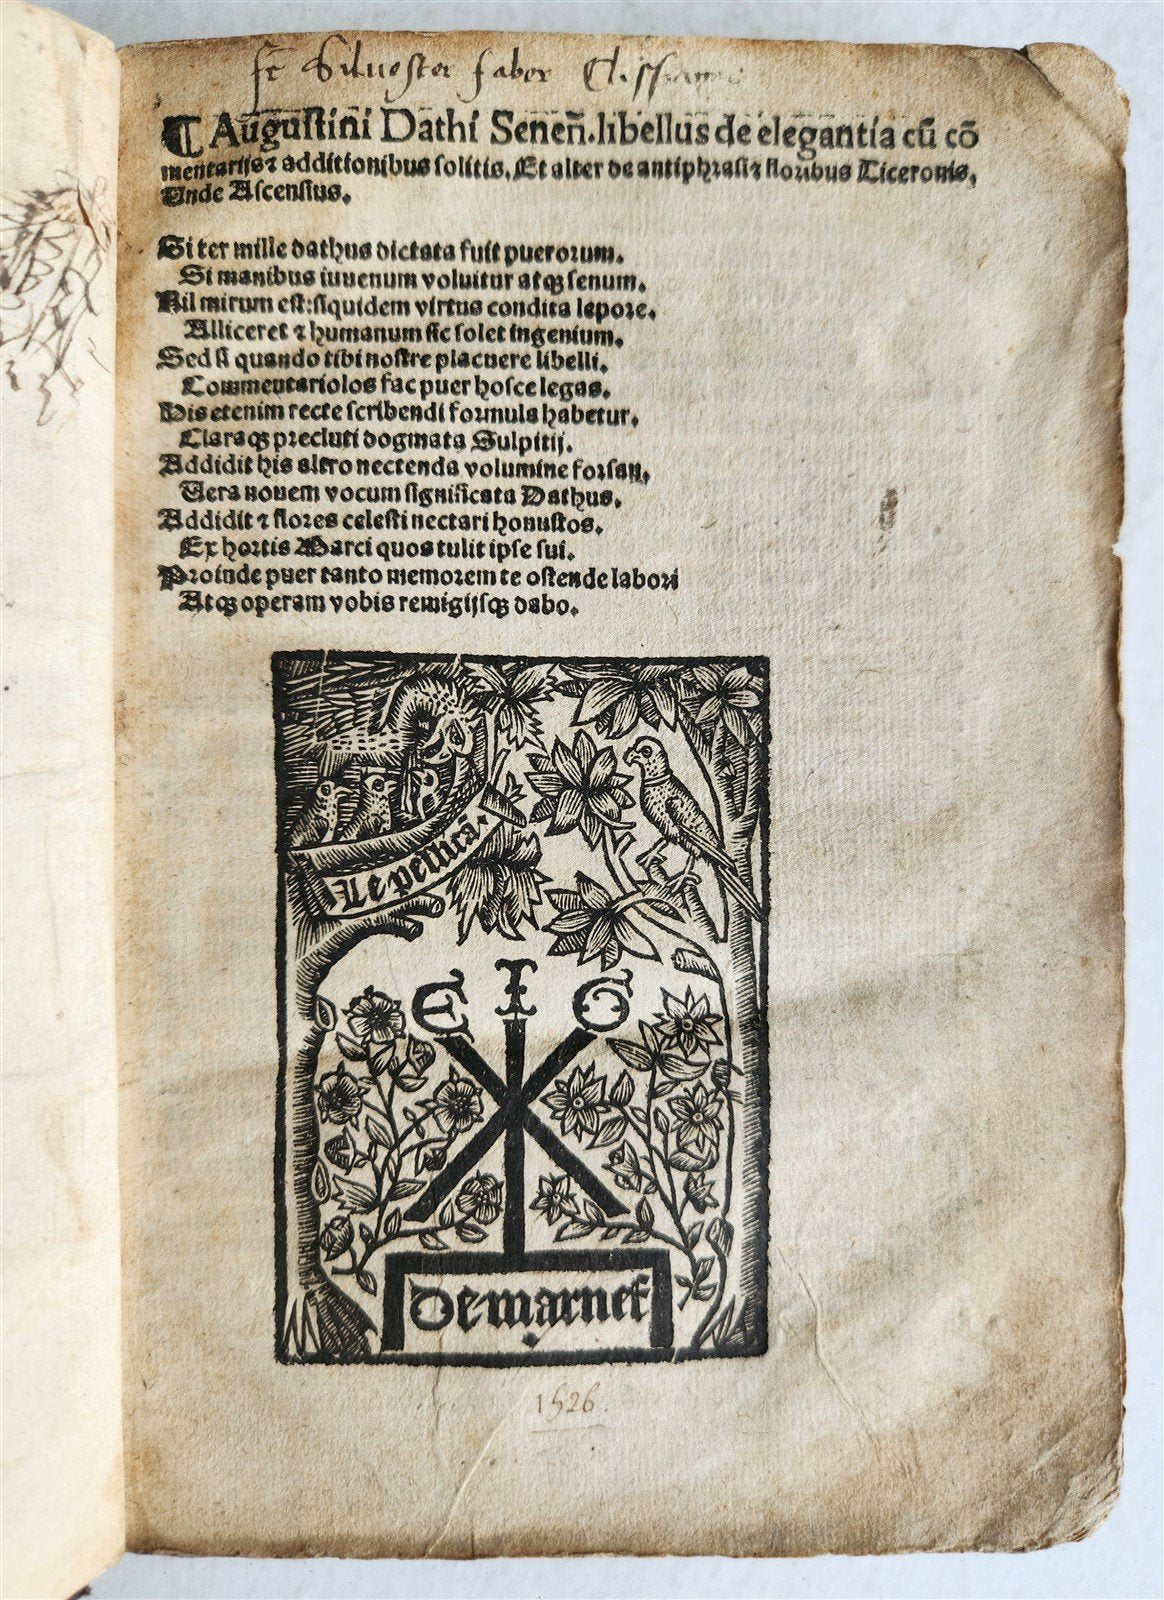 fr Siluester faber
⸿ Augustini Dathi Seneñ. libellus de elegantia cū cō
mentarijs ⁊ additionibus solitis. Et alter de antiphrasi ⁊ floribus Ciceronis,
Vnde Ascensius.
Si ter mille dathus dictata fuit puerorum.
Si manibus iuuenum voluitur atqꝫ senum.
Nil mirum est: siquidem virtus condita lepore.
Alliceret ⁊ humanum sic solet ingenium.
Sed si quando tibi nostre placuere libelli.
Commentariolos fac puer hosce legas.
His etenim recte scribendi formula habetur.
Claraqꝫ precluti dogmata Sulpitij.
Addidit his altro nectenda volumine forsan,
Vera nouem vocum significata Dathus.
Addidit ⁊ flores celesti nectari honustos.
Ex hortis Marci quos tulit ipse sui.
Proinde puer tanto memorem te ostende labori
Atqꝫ operam vobis remigijsqꝫ dabo.
Le pellica
E I G
De marnef
1526.